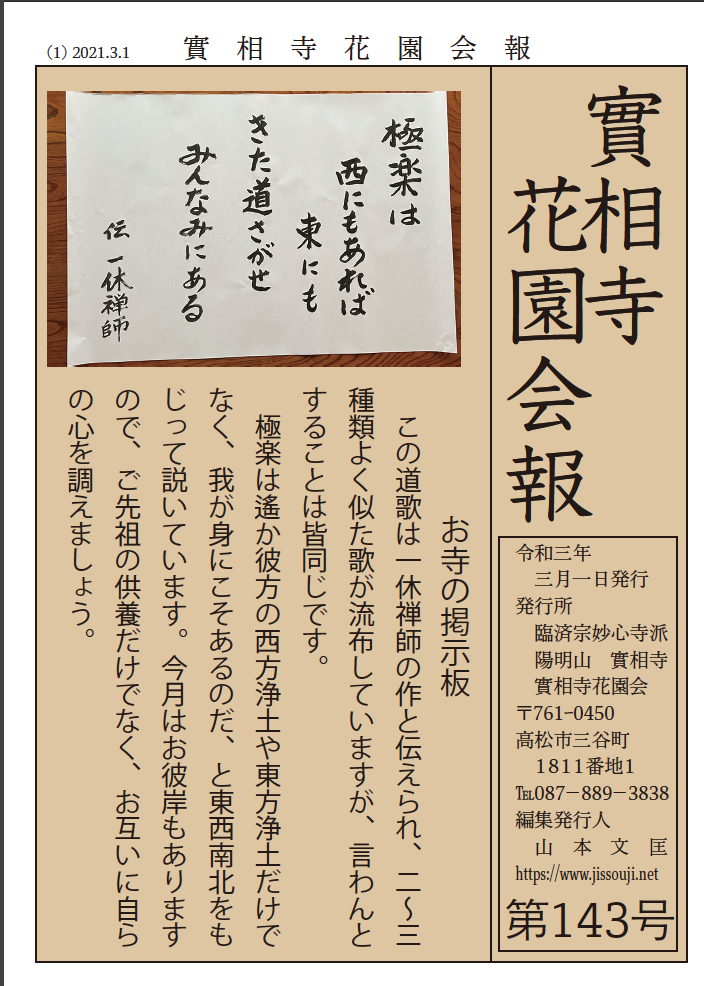 (1) 2021.3.1
實相寺花園会報
實相寺
花園会報
令和三年
三月一日発行
発行所
臨済宗妙心寺派
陽明山 實相寺
實相寺花園会
〒761-0450
高松市三谷町
1811番地1
℡087-889-3838
編集発行人
山本文匡
https://www.jissouji.net
第143号
極楽は
西にもあれば
東にも
きた道さがせ
みんなみにある
伝 一休禅師
お寺の掲示板
この道歌は一休禅師の作と伝えられ、二〜三
種類よく似た歌が流布していますが、言わんと
することは皆同じです。
極楽は遙か彼方の西方浄土や東方浄土だけで
なく、我が身にこそあるのだ、と東西南北をも
じって説いています。今月はお彼岸もあります
ので、ご先祖の供養だけでなく、お互いに自ら
の心を調えましょう。